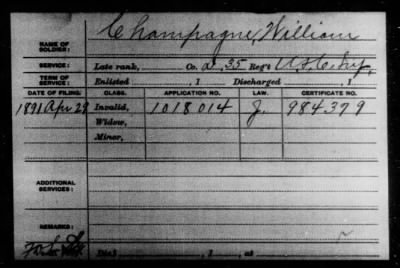 Champagne, William
NAME OF SOLDIER:
SERVICE: Late rank, Co. D, 35 Reg't U.S.C. Inf.
TERM OF SERVICE: Enlisted , 1 Discharged , 1
DATE OF FILING. CLASS. APPLICATION NO. LAW. CERTIFICATE NO.
1891 Apr 28 Invalid, 1018014 J. 984379
Widow,
Minor,
ADDITIONAL SERVICES:
REMARKS:
Died , 1 , at